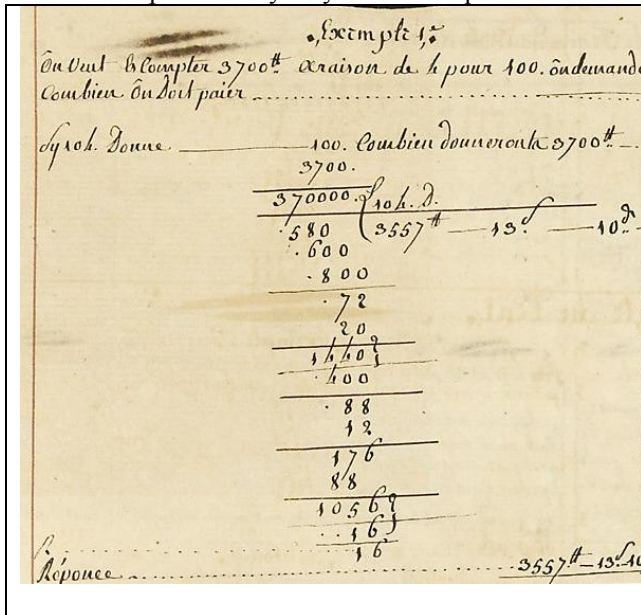 Exemple 1.er
On veut Escompter 3700.tt araison de 4 pour 100. on demande
Combien On Doit paier
Sy 104. Donne 100. Combien donneronts 3700.tt
3700.
370000. 104. D.
.580 3557.tt 13.s 10.d
.600
.800
.72
20
1440
.400
.88
12
176
88
1056
..16
16
Réponce 3557.tt 13.s 10